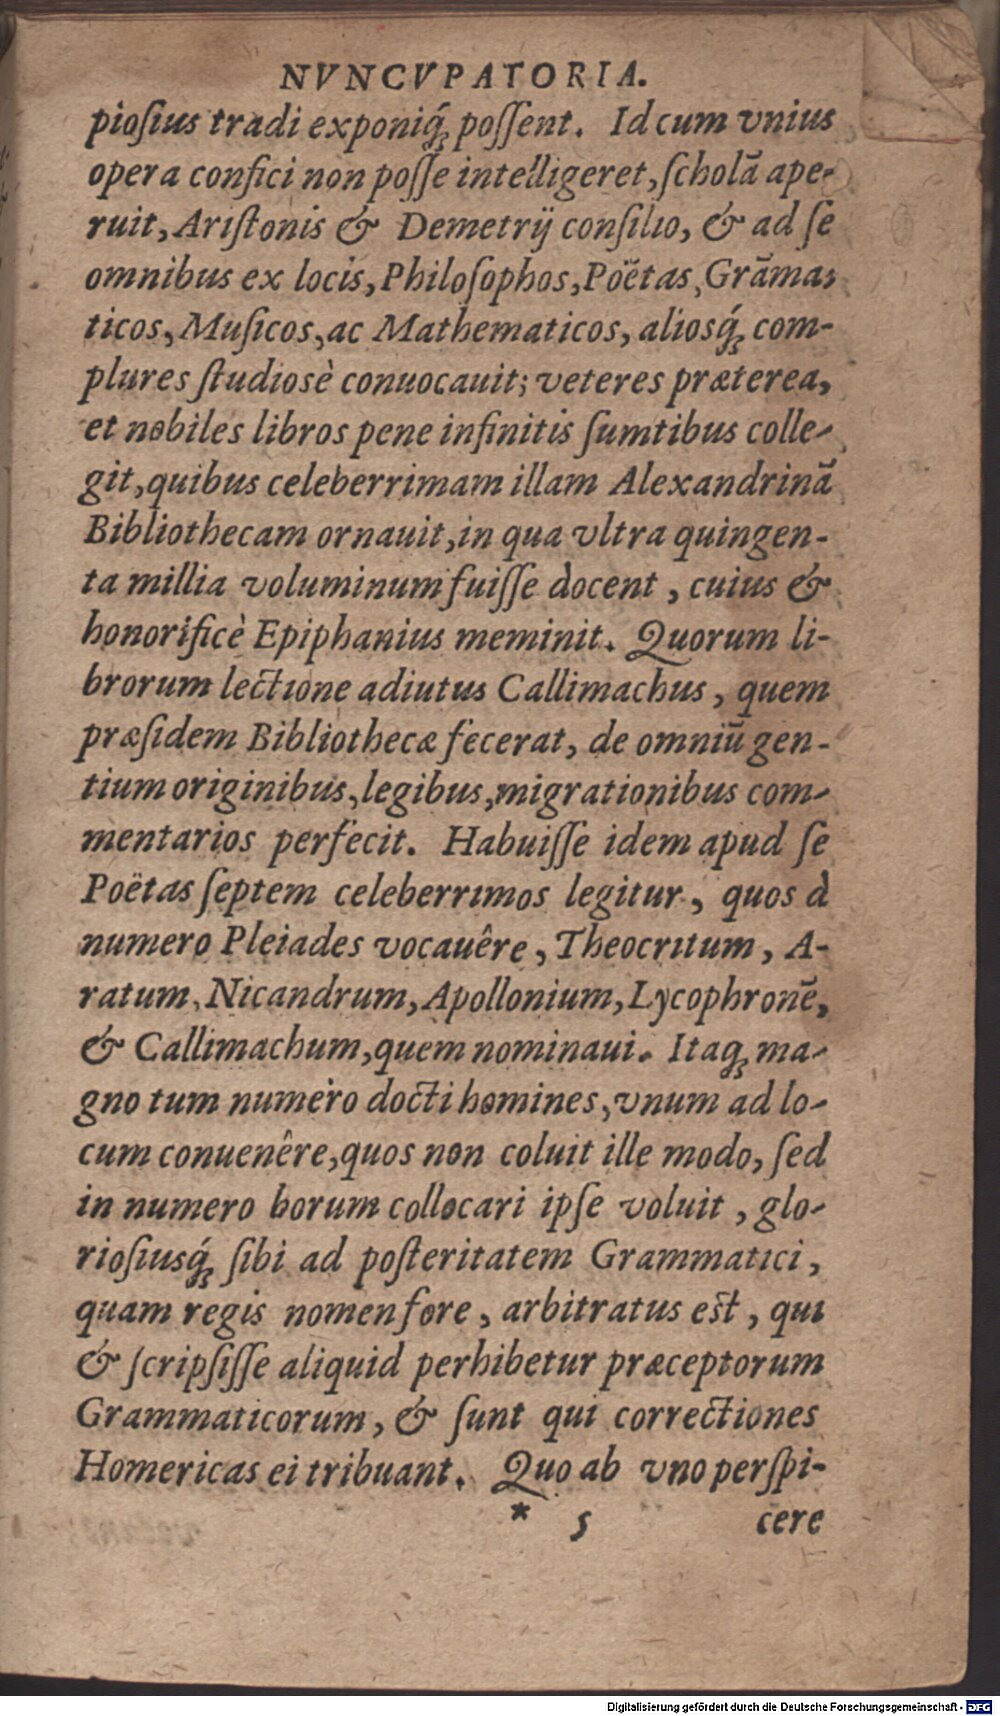 NVNCVPATORIA.
piosius tradi exponiq́; possent. Id cum vnius
opera confici non posse intelligeret, scholā ape-
ruit, Aristonis & Demetrij consilio, & ad se
omnibus ex locis, Philosophos, Poëtas, Grāma-
ticos, Musicos, ac Mathematicos, aliosq́; com-
plures studiosè conuocauit; veteres præterea,
et nobiles libros pene infinitis sumtibus colle-
git, quibus celeberrimam illam Alexandrinā
Bibliothecam ornauit, in qua vltra quingen-
ta millia voluminum fuisse docent, cuius &
honorificè Epiphanius meminit. Quorum li-
brorum lectione adiutus Callimachus, quem
præsidem Bibliothecæ fecerat, de omniū gen-
tium originibus, legibus, migrationibus com-
mentarios perfecit. Habuisse idem apud se
Poëtas septem celeberrimos legitur, quos à
numero Pleiades vocauêre, Theocritum, A-
ratum, Nicandrum, Apollonium, Lycophronē,
& Callimachum, quem nominaui. Itaq; ma-
gno tum numero docti homines, vnum ad lo-
cum conuenêre, quos non coluit ille modo, sed
in numero horum collocari ipse voluit, glo-
riosiusq́; sibi ad posteritatem Grammatici,
quam regis nomen fore, arbitratus est, qui
& scripsisse aliquid perhibetur præceptorum
Grammaticorum, & sunt qui correctiones
Homericas ei tribuant. Quo ab vno perspi-
* 5 cere
Digitalisierung gefördert durch die Deutsche Forschungsgemeinschaft - DFG